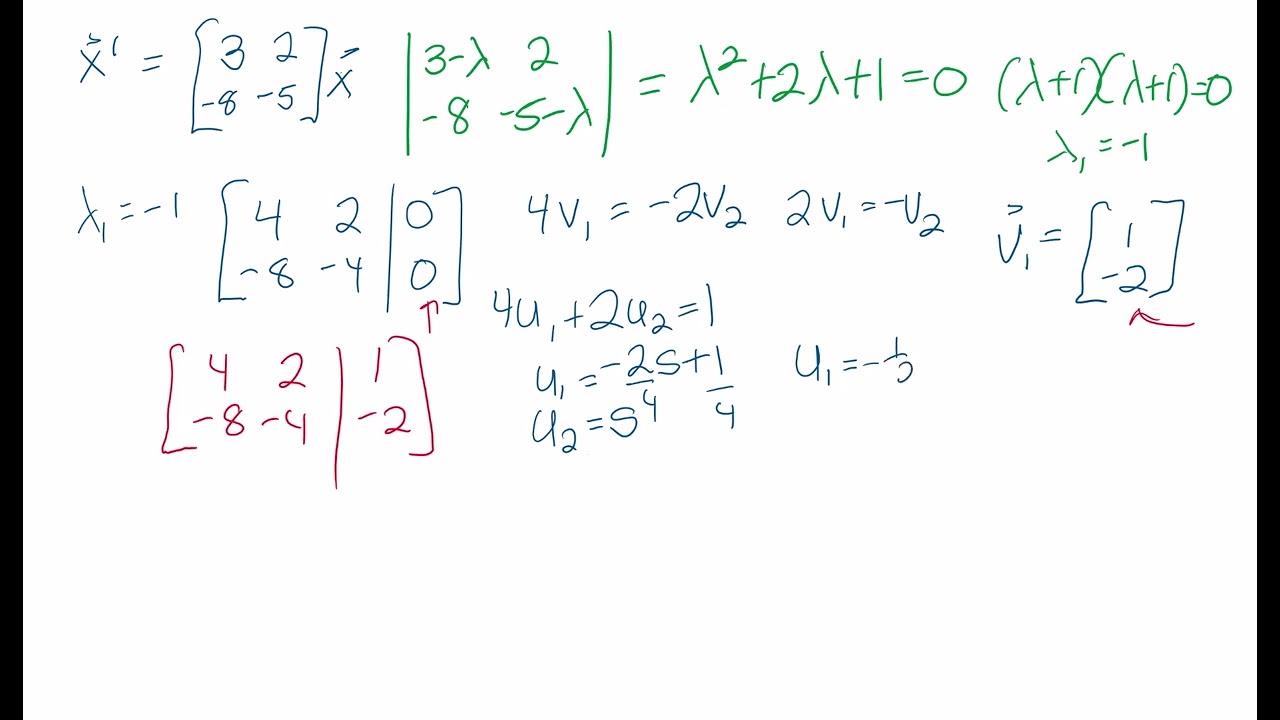 x⃗' = [3 2 -8 -5] x⃗ |3-λ 2 -8 -5-λ| = λ²+2λ+1=0 (λ+1)(λ+1)=0
λ₁ = -1
λ₁ = -1 [4 2 | 0 -8 -4 | 0] 4v₁ = -2v₂ 2v₁ = -v₂ v⃗₁ = [1 -2]
4u₁+2u₂=1
[4 2 | 1 -8 -4 | -2] u₁ = -2s/4 + 1/4 u₁ = -1/2
u₂ = s